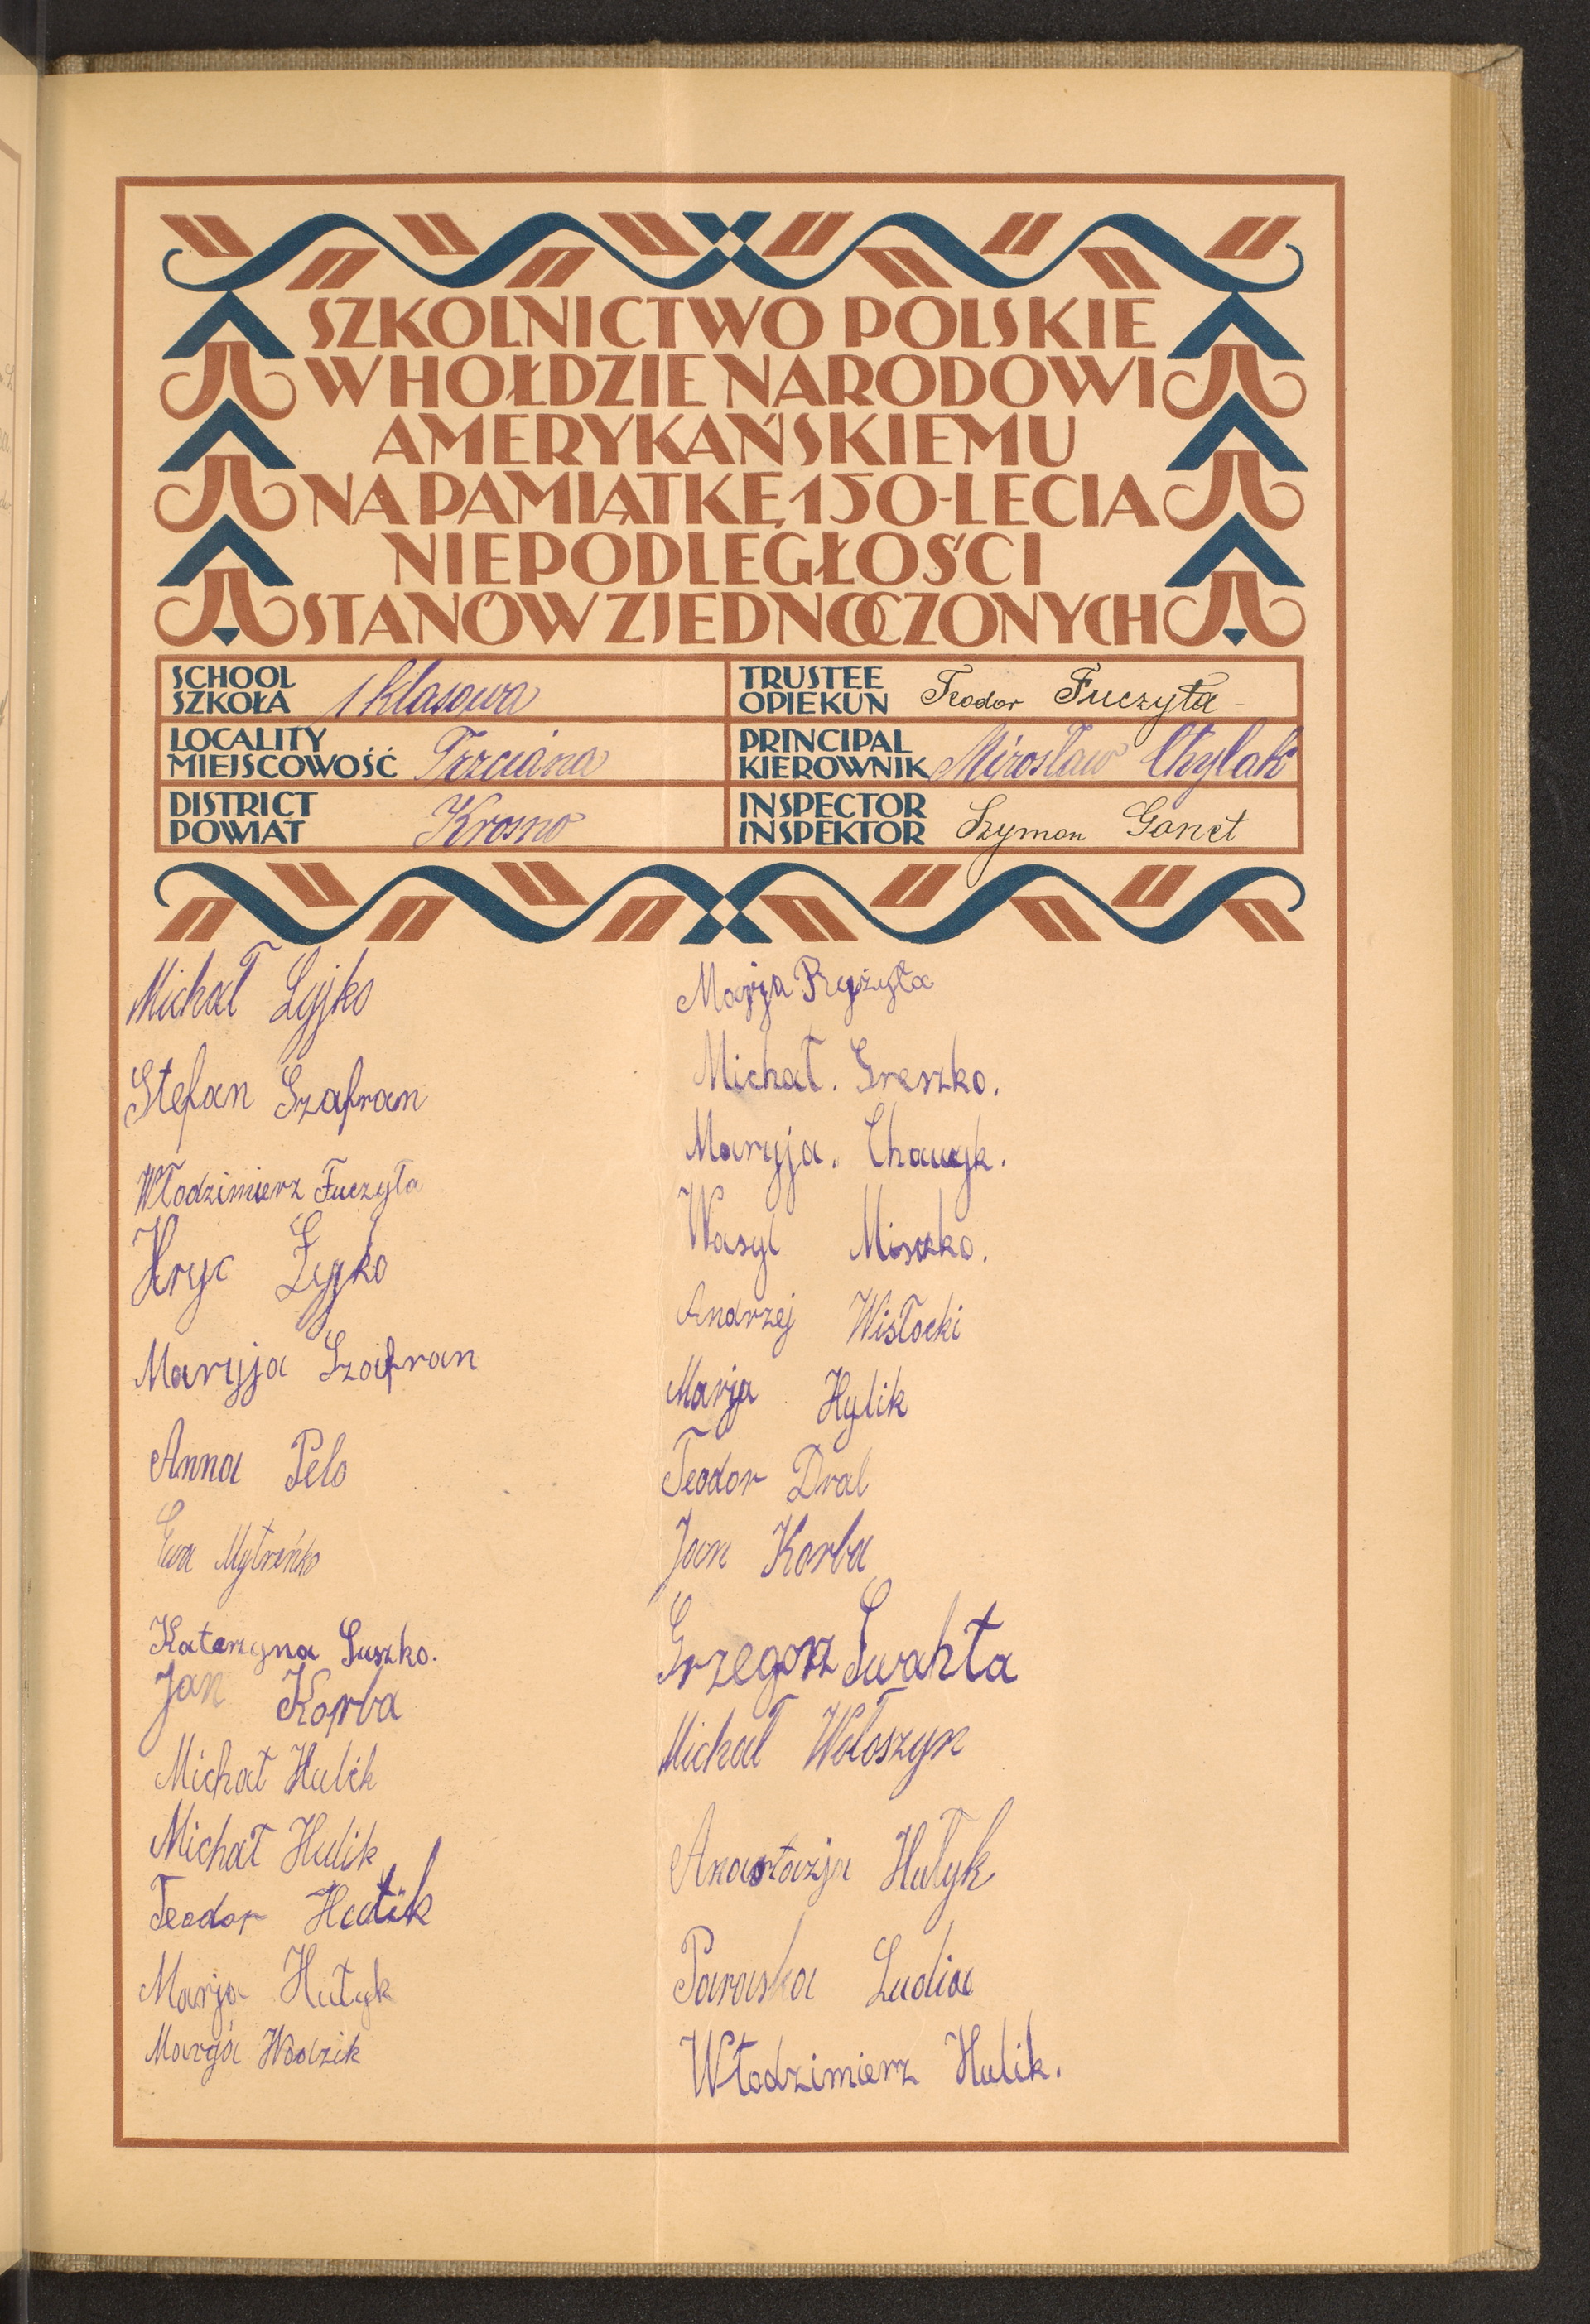 SZKOLNICTWO POLSKIE
W HOŁDZIE NARODOWI
AMERYKAŃSKIEMU
NA PAMIĄTKĘ 150-LECIA
NIEPODLEGŁOŚCI
STANÓW ZJEDNOCZONYCH
SCHOOL
SZKOŁA 1 klasowa
TRUSTEE
OPIEKUN Teodor Fuczyła
LOCALITY
MIEJSCOWOŚĆ Trzciana
PRINCIPAL
KIEROWNIK Mirosław Chylak
DISTRICT
POWIAT Krosno
INSPECTOR
INSPEKTOR Szymon Ganet
Michał Łyjko
Stefan Szafran
Włodzimierz Fuczyła
Hryc Łyjko
Maryja Szafran
Anna Pelo
Ewa Mytreńko
Katarzyna Suszko.
Jan Korba
Michał Hulik
Michał Hulik
Teodor Hutik
Marja Hutyk
Marja Wodzik
Marja
Michał. Greszko.
Maryja.
Wasyl Miszko.
Andrzej Wisłocki
Marja Hylik
Teodor Dral
Jan Korba
Grzegorz Swahta
Michał Wołoszyn
Anastazja Hułyk
Paraska Ludia
Włodzimierz Hulik.